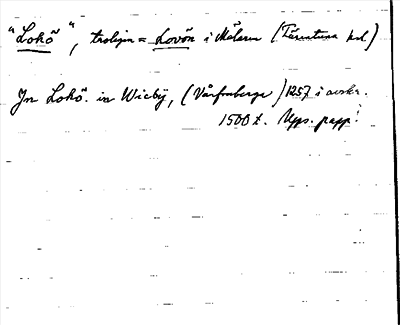 "Lokö", troligen = Lovön i Mälaren (Färentuna hd)
Jn Lokö. in Wieby, (Vårfruberga) 1257 i avskr.
1500 t. Upps. papp.